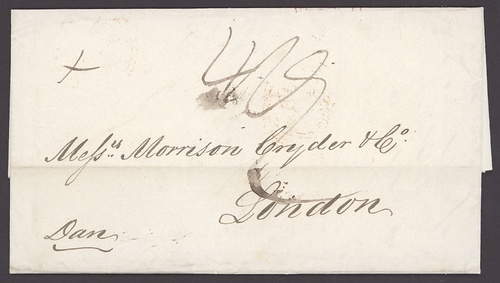 Mess.rs Morrison Cryder & Co.
London
Dan